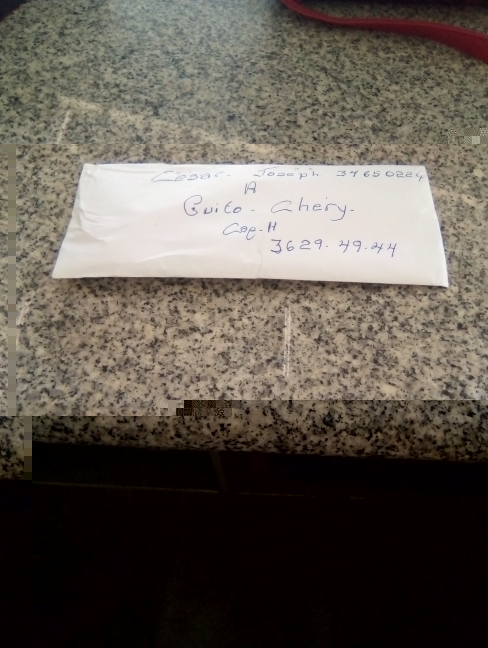 Cesar. Joseph 37650224
A
Guito. Chery.
Cap-H
3629.49.44